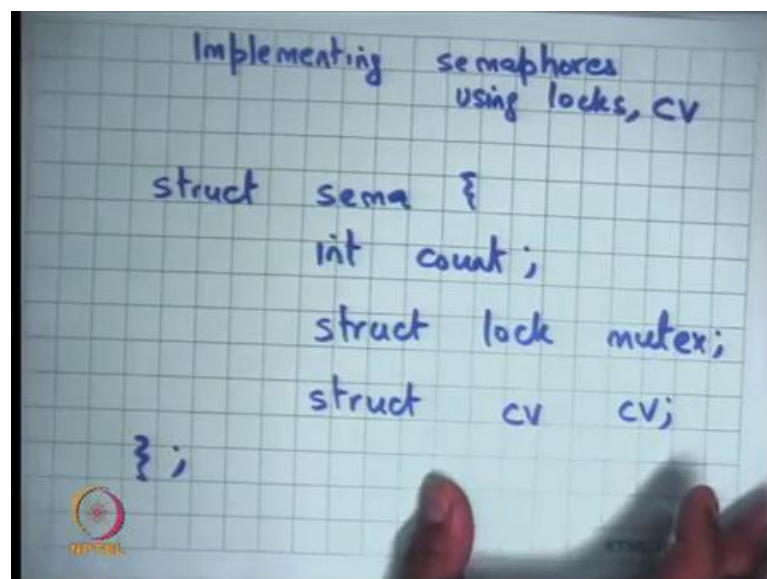 Implementing semaphores
using locks, CV
struct sema {
int count;
struct lock mutex;
struct cv cv;
};
NPTEL